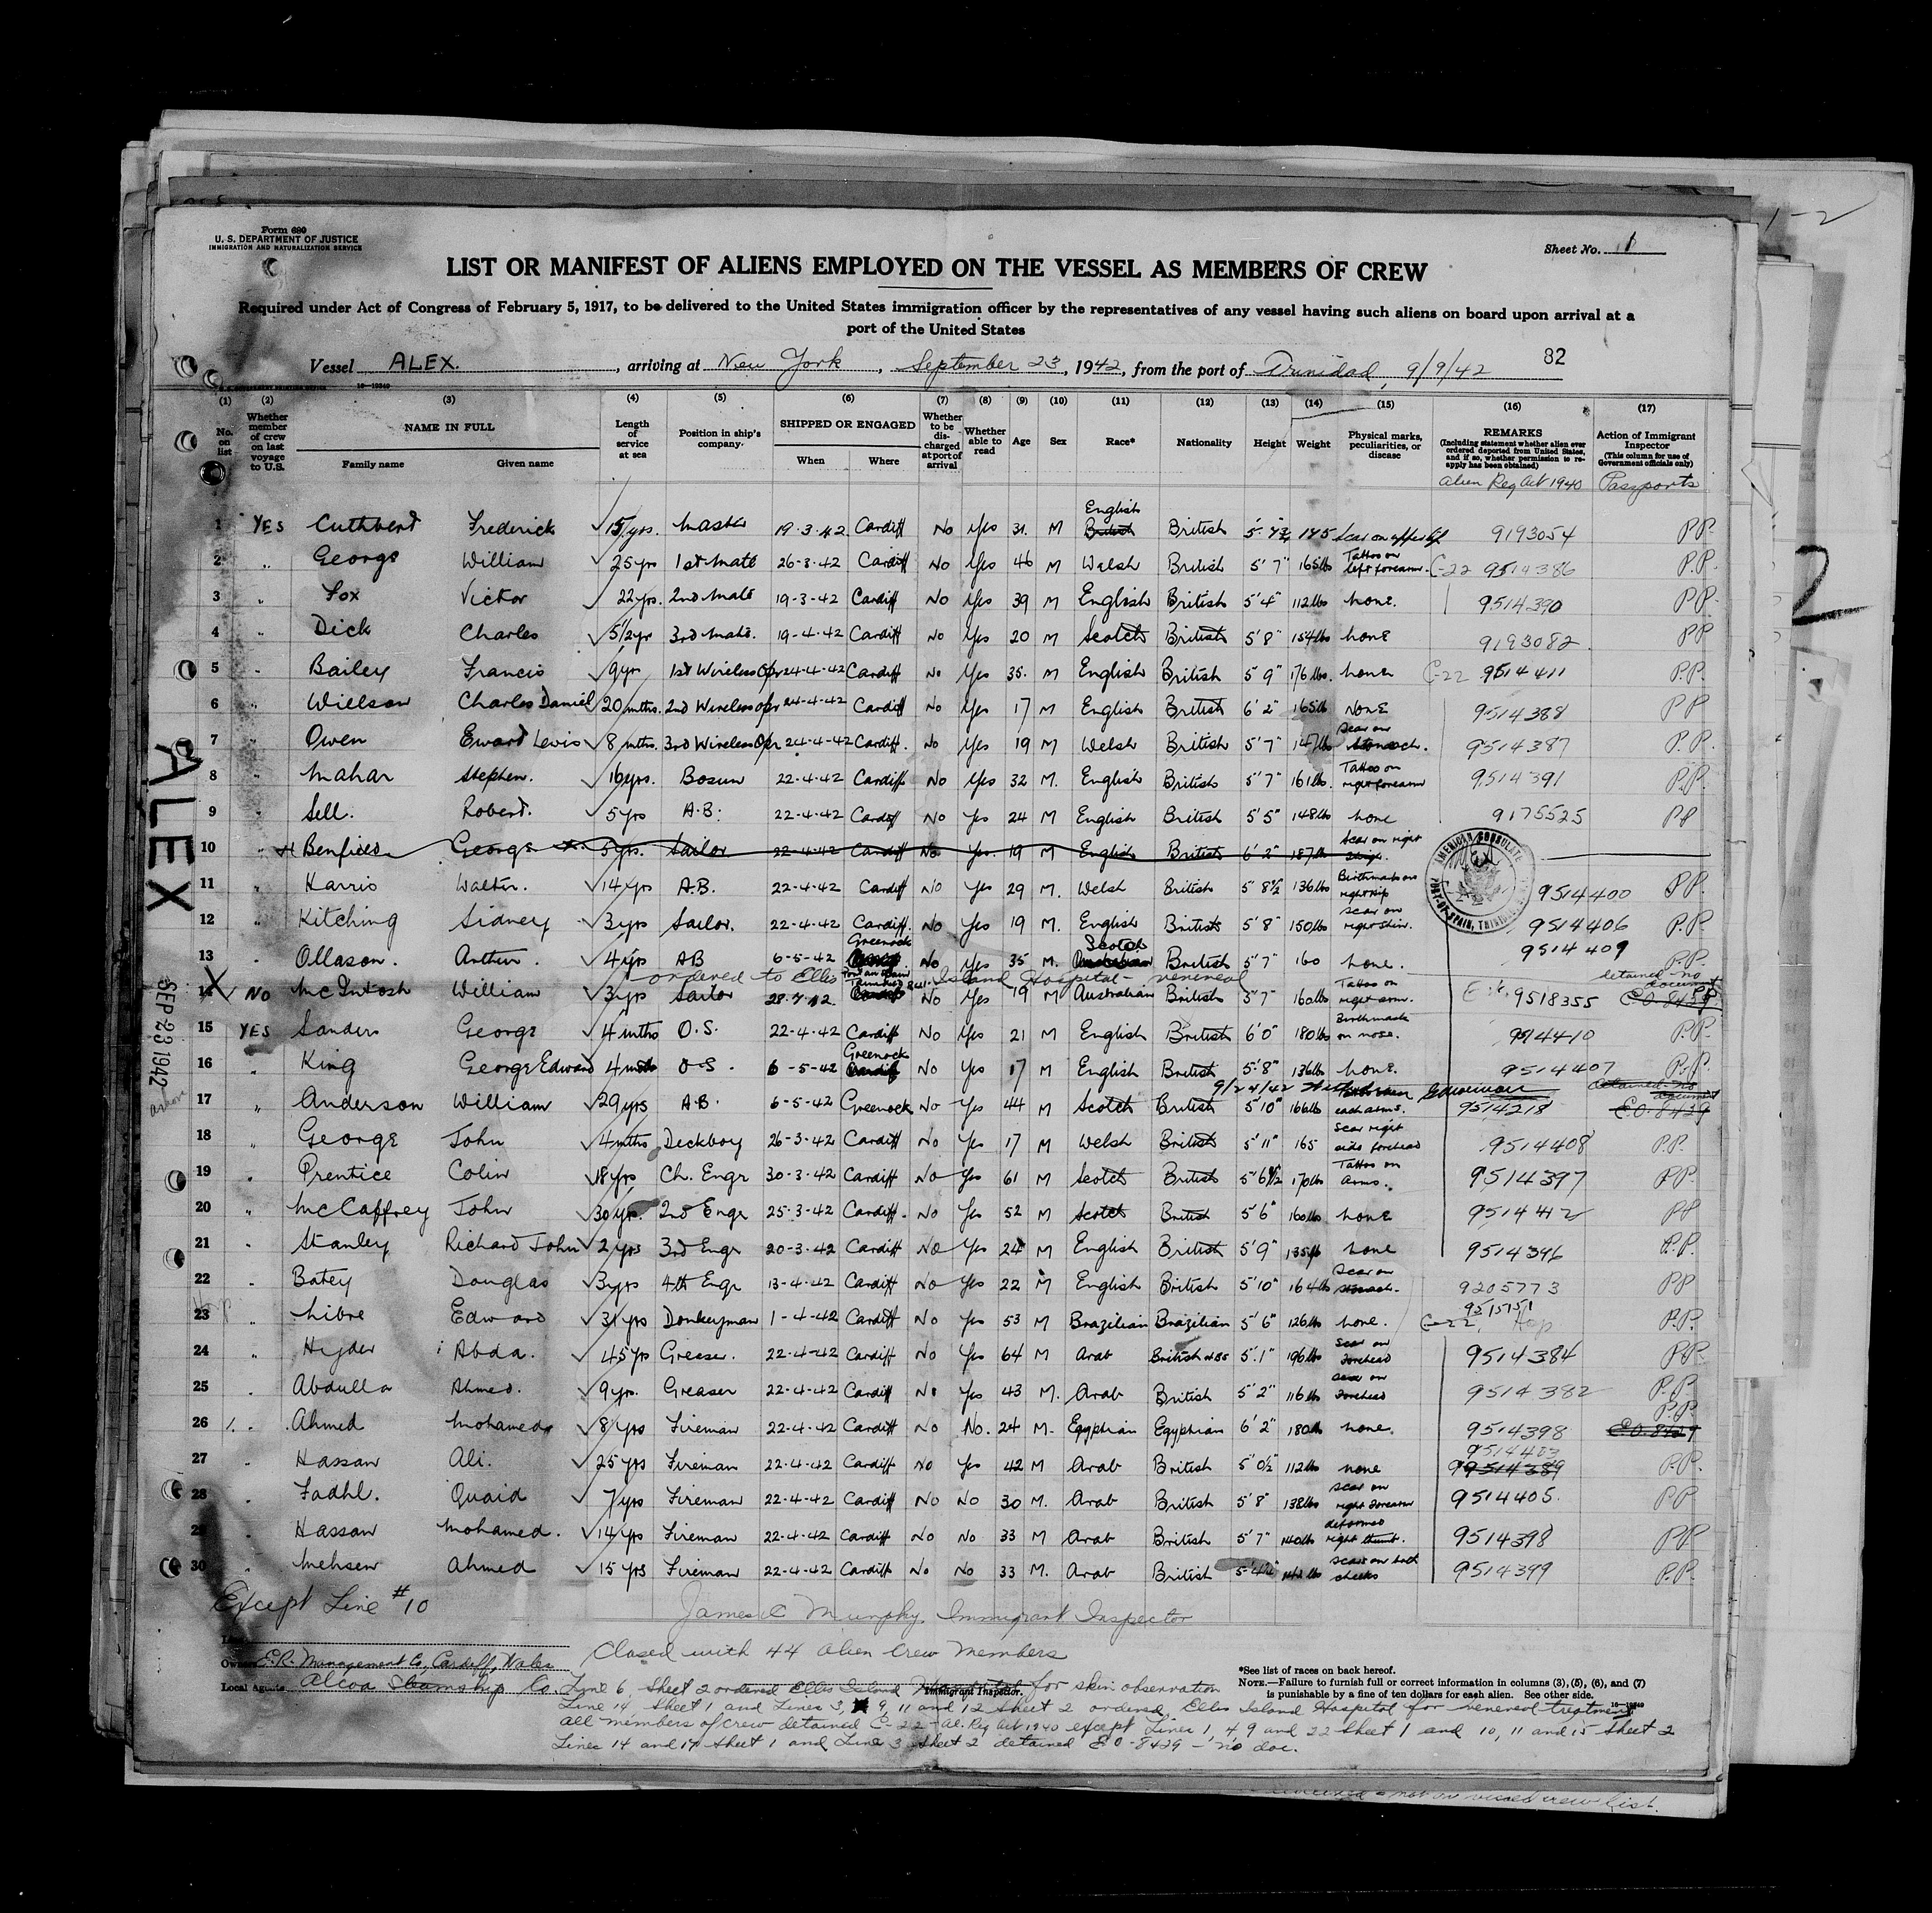 Form 680
U. S. DEPARTMENT OF JUSTICE
IMMIGRATION AND NATURALIZATION SERVICE
Sheet No. 1
LIST OR MANIFEST OF ALIENS EMPLOYED ON THE VESSEL AS MEMBERS OF CREW
Required under Act of Congress of February 5, 1917, to be delivered to the United States immigration officer by the representatives of any vessel having such aliens on board upon arrival at a
port of the United States
82
Vessel ALEX. , arriving at New York , September 23, 1942, from the port of Trinidad, 9/9/42
(1) No. on list
(2) Whether member of crew on last voyage to U.S.
(3) NAME IN FULL Family name Given name
(4) Length of service at sea
(5) Position in ship's company
(6) SHIPPED OR ENGAGED When Where
(7) Whether to be discharged at port of arrival
(8) Whether able to read
(9) Age
(10) Sex
(11) Race*
(12) Nationality
(13) Height
(14) Weight
(15) Physical marks, peculiarities, or disease
(16) REMARKS (Including statement whether alien ever ordered deported from United States, and if so, whether permission to reapply has been obtained) Alien Reg Act 1940
(17) Action of Immigrant Inspector (This column for use of Government officials only) Passports
1 YES Cuthbert Frederick 15 yrs. Master 19-3-42 Cardiff No Yes 31. M English British British 175 Scar on 9193054 P.P.
2 " George William 25 yrs 1st Mate 26-3-42 Cardiff No Yes 46 M Welsh British 5' 7" 165 lbs Tattoo on left forearm. C-22 9514386 P.P.
3 " Fox Victor 22 yrs. 2nd Mate 19-3-42 Cardiff No Yes 39 M English British 5' 4" 112 lbs none. 9514390 P.P.
4 " Dick Charles 5½ yr 3rd Mate. 19-4-42 Cardiff No Yes 20 M Scotch British 5' 8" 154 lbs none 9193082 P.P
5 " Bailey Francis 9 yr 1st Wireless Opr 24-4-42 Cardiff No Yes 35. M English British 5' 9" 176 lbs. none C-22 9514411 P.P.
6 " Wielson Charles Daniel 20 mths. 2nd Wireless opr 24-4-42 Cardiff No Yes 17 M English British 6' 2" 165 lb NONE 9514388 P P
7 " Owen Eward Lewis 8 mths. 3rd Wireless Opr 24-4-42 Cardiff. No Yes 19 M Welsh British 5' 7" 147 lbs Scar on stomach. 9514387 P.P.
8 " Mahar Stephen. 16 yrs. Bosun 22-4-42 Cardiff No Yes 32 M. English British 5' 7" 161 lbs. Tattoo on right forearm 9514391 P.P.
9 " Sell. Robert. 5 yrs A.B. 22-4-42 Cardiff No Yes 24 M English British 5' 5" 148 lbs none 9175525 P P
10 " Benfield George 5 yrs. Sailor 22-4-42 Cardiff No Yes. 19 M English British 6' 2" 187 lb Scar on right
AMERICAN CONSULATE PORT-OF-SPAIN,
11 " Harris Walter. 14 yrs A.B. 22-4-42 Cardiff No Yes 29 M. Welsh British 5' 8½ 136 lbs Birthmark on right hip 9514400 P.P.
12 " Kitching Sidney 3 yrs Sailor. 22-4-42 Cardiff. No Yes 19 M. English British 5' 8" 150 lbs Scar on right shin. 9514406 P.P.
13 " Ollason. Arthur. 4 yrs AB 6-5-42 Greenock No Yes 35 M. Scotch British 5' 7" 160 none. 9514409 P.P.
ordered to Ellis Island Hospital - venereal
14 X NO McIntosh William 3 yrs Sailor 28-7-42 No Yes 19 M Australian British 5' 7" 160 lbs Tattoo on right arm. 9518355 detained no document E.O. 8429 P.P.
15 YES Sanders George 4 mths O.S. 22-4-42 Cardiff No Yes 21 M English British 6' 0" 180 lbs Birthmark on nose. 9514410 P.P.
16 " King George Edward 4 mths O.S. 6-5-42 Greenock Cardiff No Yes 17 M English British 5' 8" 136 lbs none. 9514407 P.P.
9/24/42
17 " Anderson William 29 yrs A.B. 6-5-42 Greenock No Yes 44 M Scotch British 5' 10" 166 lbs each arms. 9514218 detained no document E.O. 8429
18 " George John 4 mths Deckboy 26-3-42 Cardiff No Yes 17 M Welsh British 5' 11" 165 Scar right side forehead 9514408 P.P.
19 " Prentice Colin 18 yrs Ch. Engr 30-3-42 Cardiff No Yes 61 M Scotch British 5' 6½ 170 lbs Tattoo on arms. 9514397 P.P.
20 " McCaffrey John 30 yrs. 2nd Engr 25-3-42 Cardiff. No Yes 52 M Scotch British 5' 6" 160 lbs none 9514412 P P
21 " Stanley Richard John 2 yrs 3rd Engr 20-3-42 Cardiff No Yes 24 M English British 5' 9" 135 lb none 9514396 P.P.
22 " Batey Douglas 3 yrs 4th Engr 13-4-42 Cardiff No Yes 22 M English British 5' 10" 164 lb Scar on stomach. 9205773 P P
23 " Libre Edward 31 yrs Donkeyman 1-4-42 Cardiff No Yes 53 M Brazilian Brazilian 5' 6" 126 lbs none. C-22 9515151 Hop P.P.
24 " Hyder Abda. 45 yrs Greaser. 22-4-42 Cardiff No Yes 64 M Arab British 5'.1" 196 lbs Scar on forehead 9514384 P.P.
25 " Abdulla Ahmed. 9 yr. Greaser 22-4-42 Cardiff No Yes 43 M. Arab British 5' 2" 116 lb Scar on forehead 9514382 P.P.
26 " Ahmed Mohamed 8 yrs Fireman 22-4-42 Cardiff No No. 24 M. Egyptian Egyptian 6' 2" 180 lb none. 9514398 P.P. E.O. 8429
27 " Hassan Ali. 25 yrs Fireman 22-4-42 Cardiff No Yes 42 M Arab British 5' 0½" 112 lbs none 9514403 9514389 P.P.
28 " Fadhl. Quaid 7 yrs Fireman 22-4-42 Cardiff No No 30 M. Arab British 5' 8" 138 lbs Scar on right forearm 9514405. P P
29 " Hassan Mohamed. 14 yrs Fireman 22-4-42 Cardiff No No 33 M Arab British 5' 7" 140 lb deformed right thumb. 9514398 P P
30 " Mehsen Ahmed 15 yrs Fireman 22-4-42 Cardiff No No 33 M. Arab British Scars on both cheeks 9514399 P.P.
Except Line #10
James C Murphy, Immigrant Inspector
Closed with 44 alien crew members
Owners E.R. Management Co, Cardiff, Wales
Local Agents Alcoa Steamship Co.
Immigrant Inspector.
Line 6, Sheet 2 ordered Ellis Island Hospital for skin observation
Line 14 Sheet 1 and Lines 3, 9, 11 and 12 Sheet 2 ordered Ellis Island Hospital for venereal treatment
all members of crew detained C-22 - Al. Reg Act 1940 except Lines 1, 4 9 and 22 Sheet 1 and 10, 11 and 15 Sheet 2
Lines 14 and 17 Sheet 1 and Line 3 Sheet 2 detained E O-8429 - no doc.
*See list of races on back hereof.
NOTE.—Failure to furnish full or correct information in columns (3), (5), (6), and (7)
is punishable by a fine of ten dollars for each alien. See other side.
ALEX
SEP 23 1942
1-2
2
not on visaed crew list.